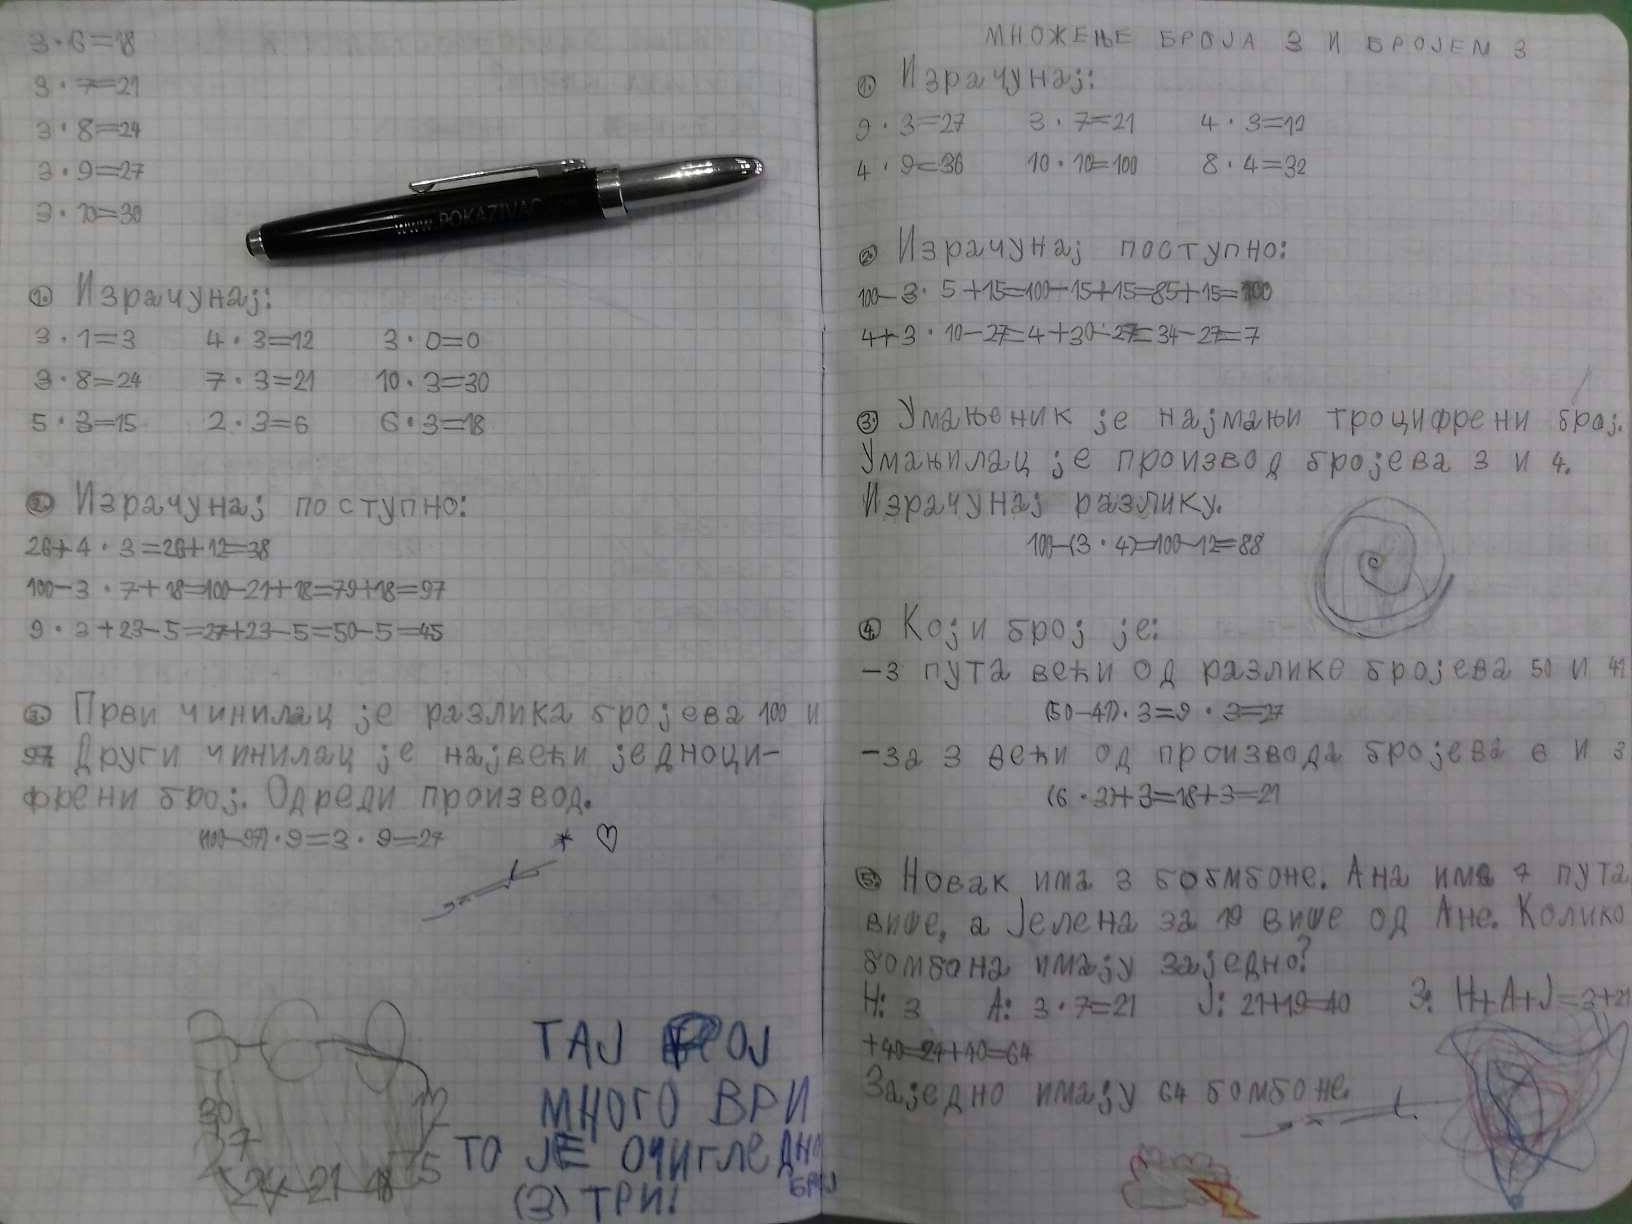 3·6=18
3·7=21
3·8=24
3·9=27
3·10=30
WWW.POKAZIVAC
1. Израчунај:
3·1=3 4·3=12 3·0=0
3·8=24 7·3=21 10·3=30
5·3=15 2·3=6 6·3=18
2. Израчунај поступно:
26+4·3=26+12=38
100-3·7+18=100-21+18=79+18=97
9·3+23-5=27+23-5=50-5=45
3. Први чинилац је разлика бројева 100 и
97 Други чинилац је највећи једноци-
френи број. Одреди производ.
(100-97)·9=3·9=27
30
27
24 21 18
15
12
ТАЈ БРОЈ
МНОГО ВРИ
ТО ЈЕ ОЧИГЛЕДНО
БРОЈ
(3) ТРИ!
МНОЖЕЊЕ БРОЈА 3 И БРОЈЕМ 3
1. Израчунај:
9·3=27 3·7=21 4·3=12
4·9=36 10·10=100 8·4=32
2. Израчунај поступно:
100-3·5+15=100-15+15=85+15=100
4+3·10-27=4+30-27=34-27=7
3. Умањеник је најмањи троцифрени број.
Умањилац је производ бројева 3 и 4.
Израчунај разлику.
100-(3·4)=100-12=88
4. Који број је:
-3 пута већи од разлике бројева 50 и 41
(50-41)·3=9·3=27
-за 3 већи од производа бројева 6 и 3
(6·3)+3=18+3=21
5. Новак има 3 бомбоне. Ана има 7 пута
више, а Јелена за 19 више од Ане. Колико
бомбона имају заједно?
Н: 3 А: 3·7=21 Ј: 21+19=40 З: Н+А+Ј=3+21
+40=24+40=64
Заједно имају 64 бомбоне.